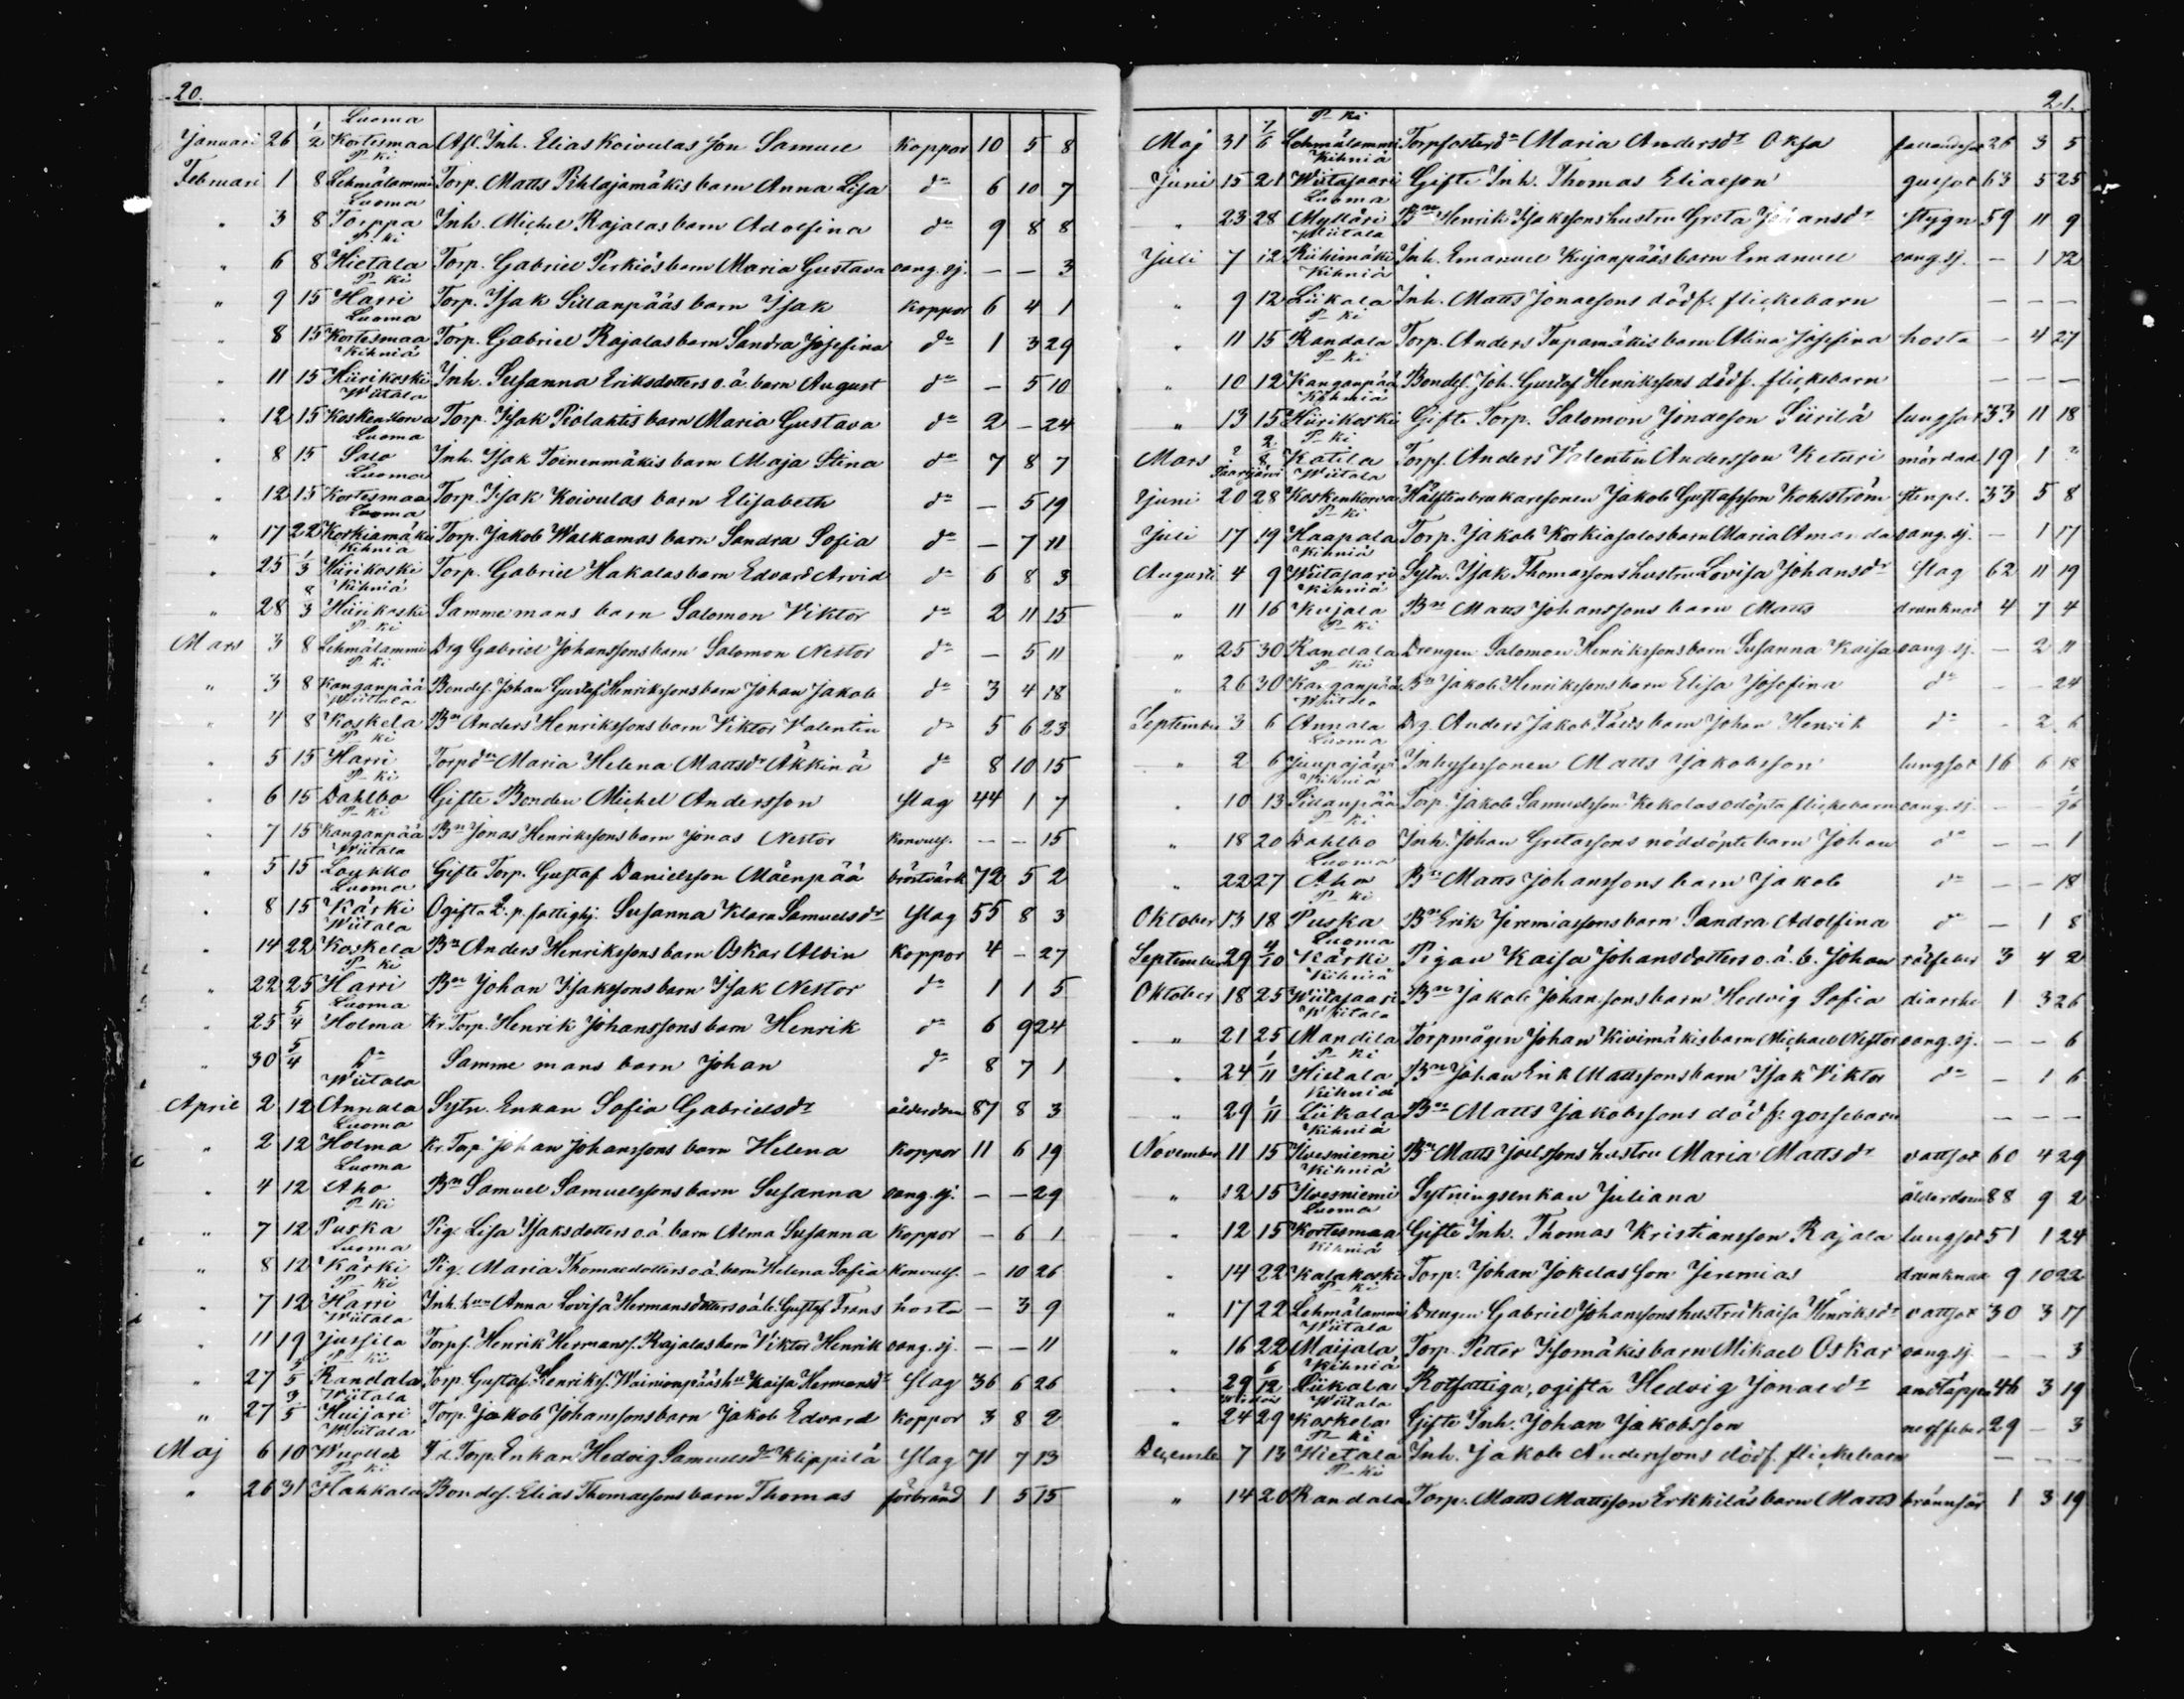 20.
Luoma
Januari 26 1/2 Kortesmaa Afl. Inh. Elias Koivulas son Samuel Koppor 10 5 8
P-ki
Februari 1 8 Lehmälammi Torp. Matts Pihlajamäkis barn Anna Lisa do 6 10 7
Luoma
" 3 8 Torppa Inh. Michel Rajalas barn Adolfina do 9 8 8
P-ki
" 6 8 Hietala Torp. Gabriel Perkiös barn Maria Gustava oang. sj. — — 3
P-ki
" 9 15 Harri Torp. Isak Sillanpääs barn Isak Koppor 6 4 1
Luoma
" 8 15 Kortesmaa Torp. Gabriel Rajalas barn Sandra Josefina do 1 3 29
Kihniä
" 11 15 Hiirikoski Inh. Susanna Eriksdotters o.ä. barn August do — 5 10
Wiitala
" 12 15 Koskenkorva Torp. Isak Riolahtis barn Maria Gustava do 2 — 24
Luoma
" 8 15 Salo Inh. Isak Toinenmäkis barn Maja Stina do 7 8 7
Luoma
" 12 15 Kortesmaa Torp. Isak Koivulas barn Elisabeth do — 5 19
Luoma
" 17 22 Korkiamäki Torp. Jakob Walkamas barn Sandra Sofia do — 7 11
Kihniä
" 25 1/3 Hiirikoski Torp. Gabriel Hakalas barn Edvard Arvid do 6 8 3
Kihniä
" 28 8/3 Hiirikoski Samme mans barn Salomon Viktor do 2 11 15
P-ki
Mars 3 8 Lehmälammi Drg Gabriel Johanssons barn Salomon Nestor do — 5 11
P-ki
" 3 8 Kanganpää Bondes. Johan Gustaf Henrikssons barn Johan Jakob do 3 4 18
Wiitala
" 4 8 Koskela Bn Anders Henrikssons barn Viktor Valentin do 5 6 23
P-ki
" 5 15 Harri Torpdn Maria Helena Mattsdr Äkkinä do 8 10 15
P-ki
" 6 15 Dahlbo Gifte Bonden Michel Andersson slag 44 1 7
P-ki
" 7 15 Kanganpää Bn Jonas Henrikssons barn Jonas Nestor Konvuls. — — 15
Wiitala
" 5 15 Laukko Gifte Torp. Gustaf Danielsson Mäenpää bröstvärk 72 5 2
Luoma
" 8 15 Kärki Ogifta L. p. fattighj. Susanna Klara Samuelsdr Slag 55 8 3
Wiitala
" 14 22 Koskela Bn Anders Henrikssons barn Oskar Albin Koppor 4 — 27
P-ki
" 22 25 Harri Bn Johan Isakssons barn Isak Nestor do 1 1 5
Luoma
" 25 5/4 Holma Kr. Torp. Henrik Johanssons barn Henrik do 6 9 24
" 30 5/4 do Samme mans barn Johan do 8 7 1
Wiitala
April 2 12 Annala Sytn. Enkan Sofia Gabrielsdr ålderdom 87 8 3
Luoma
" 2 12 Holma Kr. Torp Johan Johanssons barn Helena Koppor 11 6 19
Luoma
" 4 12 Aho Bn Samuel Samuelssons barn Susanna oang. sj. — — 29
P-ki
" 7 12 Puska Pig. Lisa Isaksdotters o.ä barn Alma Susanna Koppor — 6 1
Luoma
" 8 12 Kärki Pig. Maria Thomasdotters o.ä. barn Helena Sofia Konvuls. — 10 26
P-ki
" 7 12 Harri Inh. Anna Lovisa Hermansdotters o.ä. b. Gustaf Frans hosta — 3 9
Wiitala
" 11 19 Jussila Torps. Henrik Hermans. Rajalas barn Viktor Henrik oang. sj. — — 11
P-ki
" 27 3/5 Randala Torp. Gustaf Henriks. Wainionpääs hu Kaisa Hermansdr Slag 36 6 26
Wiitala
" 27 3/5 Huijari Torp. Jakob Johanssons barn Jakob Edvard Koppor 3 8 2
Wiitala
Maj 6 10 F.d. Torp. Enkan Hedvig Samuelsdr Klippilä Slag 71 7 13
P-ki
" 26 31 Hahkala Bondes. Elias Thomassons barn Thomas förbränd 1 5 15
21.
P-ki
Maj 31 7/6 Lehmälammi Torpfosterdn Maria Andersdr Oksa 26 3 5
Kihniä
Juni 15 21 Wiitasaari Gifte Inh. Thomas Eliasson gulsot 63 5 25
Luoma
" 23 28 Mylläri Bn Henrik Isakssons hustru Greta Johansdr Stygn 59 11 9
Wiitala
Juli 7 12 Riihimäki Inh. Emanuel Kujanpääs barn Emanuel oang. sj. — 1 12
Kihniä
" 9 12 Liikala Inh. Matts Jonassons dödf. flickebarn — — —
P-ki
" 11 15 Randala Torp. Anders Tupamäkis barn Alina Josefina hosta — 4 27
P-ki
" 10 12 Kanganpää Bondes. Joh. Gustaf Henrikssons dödf. flickebarn — — —
Kihniä
" 13 15 Hiirikoski Gifte Torp. Salomon Jonasson Siirilä lungsot 33 11 18
P-ki
Mars ? 2/8 Katila Torps. Anders Valentin Andersson Keturi mördad 19 1 ?
Wiitala
Juni 20 28 Koskenkorva Hälftenbrukaresonen Jakob Gustafsson Kohlström 33 5 8
P-ki
Juli 17 19 Haapala Torp. Jakob Korkiasalos barn Maria Amanda oang. sj. — 1 17
Kihniä
Augusti 4 9 Wiitasaari Sytn. Isak Thomassons hustru Lovisa Johansdr Slag 62 11 19
Kihniä
" 11 16 Kujala Bn Matts Johanssons barn Matts drunknad 4 7 4
P-ki
" 25 30 Randala Drengen Salomon Henrikssons barn Susanna Kaisa oang. sj. — 2 11
P-ki
" 26 30 Kanganpää Bn Jakob Henrikssons barn Elisa Josefina do — — 24
Wiitala
September 3 6 Annala Drg. Anders Jakob barn Johan Henrik do — 2 6
Luoma
" 2 6 Juupajärvi Inhysessonen Matts Jakobsson lungsot 16 6 18
Kihniä
" 10 13 Sillanpää Torp. Jakob Samuelsson Kekolas odöpta flickebarn oang. sj. — —
P-ki
" 18 20 Dahlbo Inh. Johan Gustassons nöddöpte barn Johan do — — 1
Luoma
" 22 27 Aho Bn Matts Johanssons barn Jakob do — — 18
P-ki
Oktober 13 18 Puska Bn Erik Jeremiassons barn Sandra Adolfina do — 1 8
Luoma
September 29 4/10 Kärki Pigan Kaisa Johansdotters o.ä. b. Johan rötfeber 3 4 2
Kihniä
Oktober 18 25 Wiitasaari Bn Jakob Johanssons barn Hedvig Sofia diarrhe 1 3 26
Wiitala
" 21 25 Mandila Torpmågen Johan Kivimäkis barn Michael Nestor oang. sj. — — 6
P-ki
" 24 1/11 Hietala Bn Johan Erik Mattssons barn Isak Viktor do — 1 6
Kihniä
" 29 1/11 Liikala Bn Matts Jakobssons dödf. gossebarn — — —
Kihniä
November 11 15 Ilvesniemi Bn Matts Joelssons hustru Maria Mattsdr vattsot 60 4 29
Kihniä
" 12 15 Ilvesniemi Sytningsenkan Juliana ålderdom 88 9 2
Luoma
" 12 15 Kortesmaa Gifte Inh. Thomas Kristiansson Rajala lungsot 51 1 24
Kihniä
" 14 22 Kalakoski Torp. Johan Jokelas son Jeremias drunknad 9 10 22
P-ki
" 17 22 Lehmälammi Drengen Gabriel Johanssons hustru Kaisa Henriksdr vattsot 30 3 17
Wiitala
" 16 22 Maijala Torp. Petter Isomäkis barn Mikael Oskar oang. sj. — — 3
Kihniä
" 29 6/12 Liikala Rotfattiga, ogifta Hedvig Jonasdr andtäppa 46 3 19
Wiitala
" 24 29 Koskela Gifte Inh. Johan Jakobsson 29 — 3
P-ki
December 7 13 Hietala Inh. Jakob Anderssons dödf. flickebarn — — —
P-ki
" 14 20 Randala Torp. Matts Mattsson Erkkiläs barn Matts brännsår 1 3 19